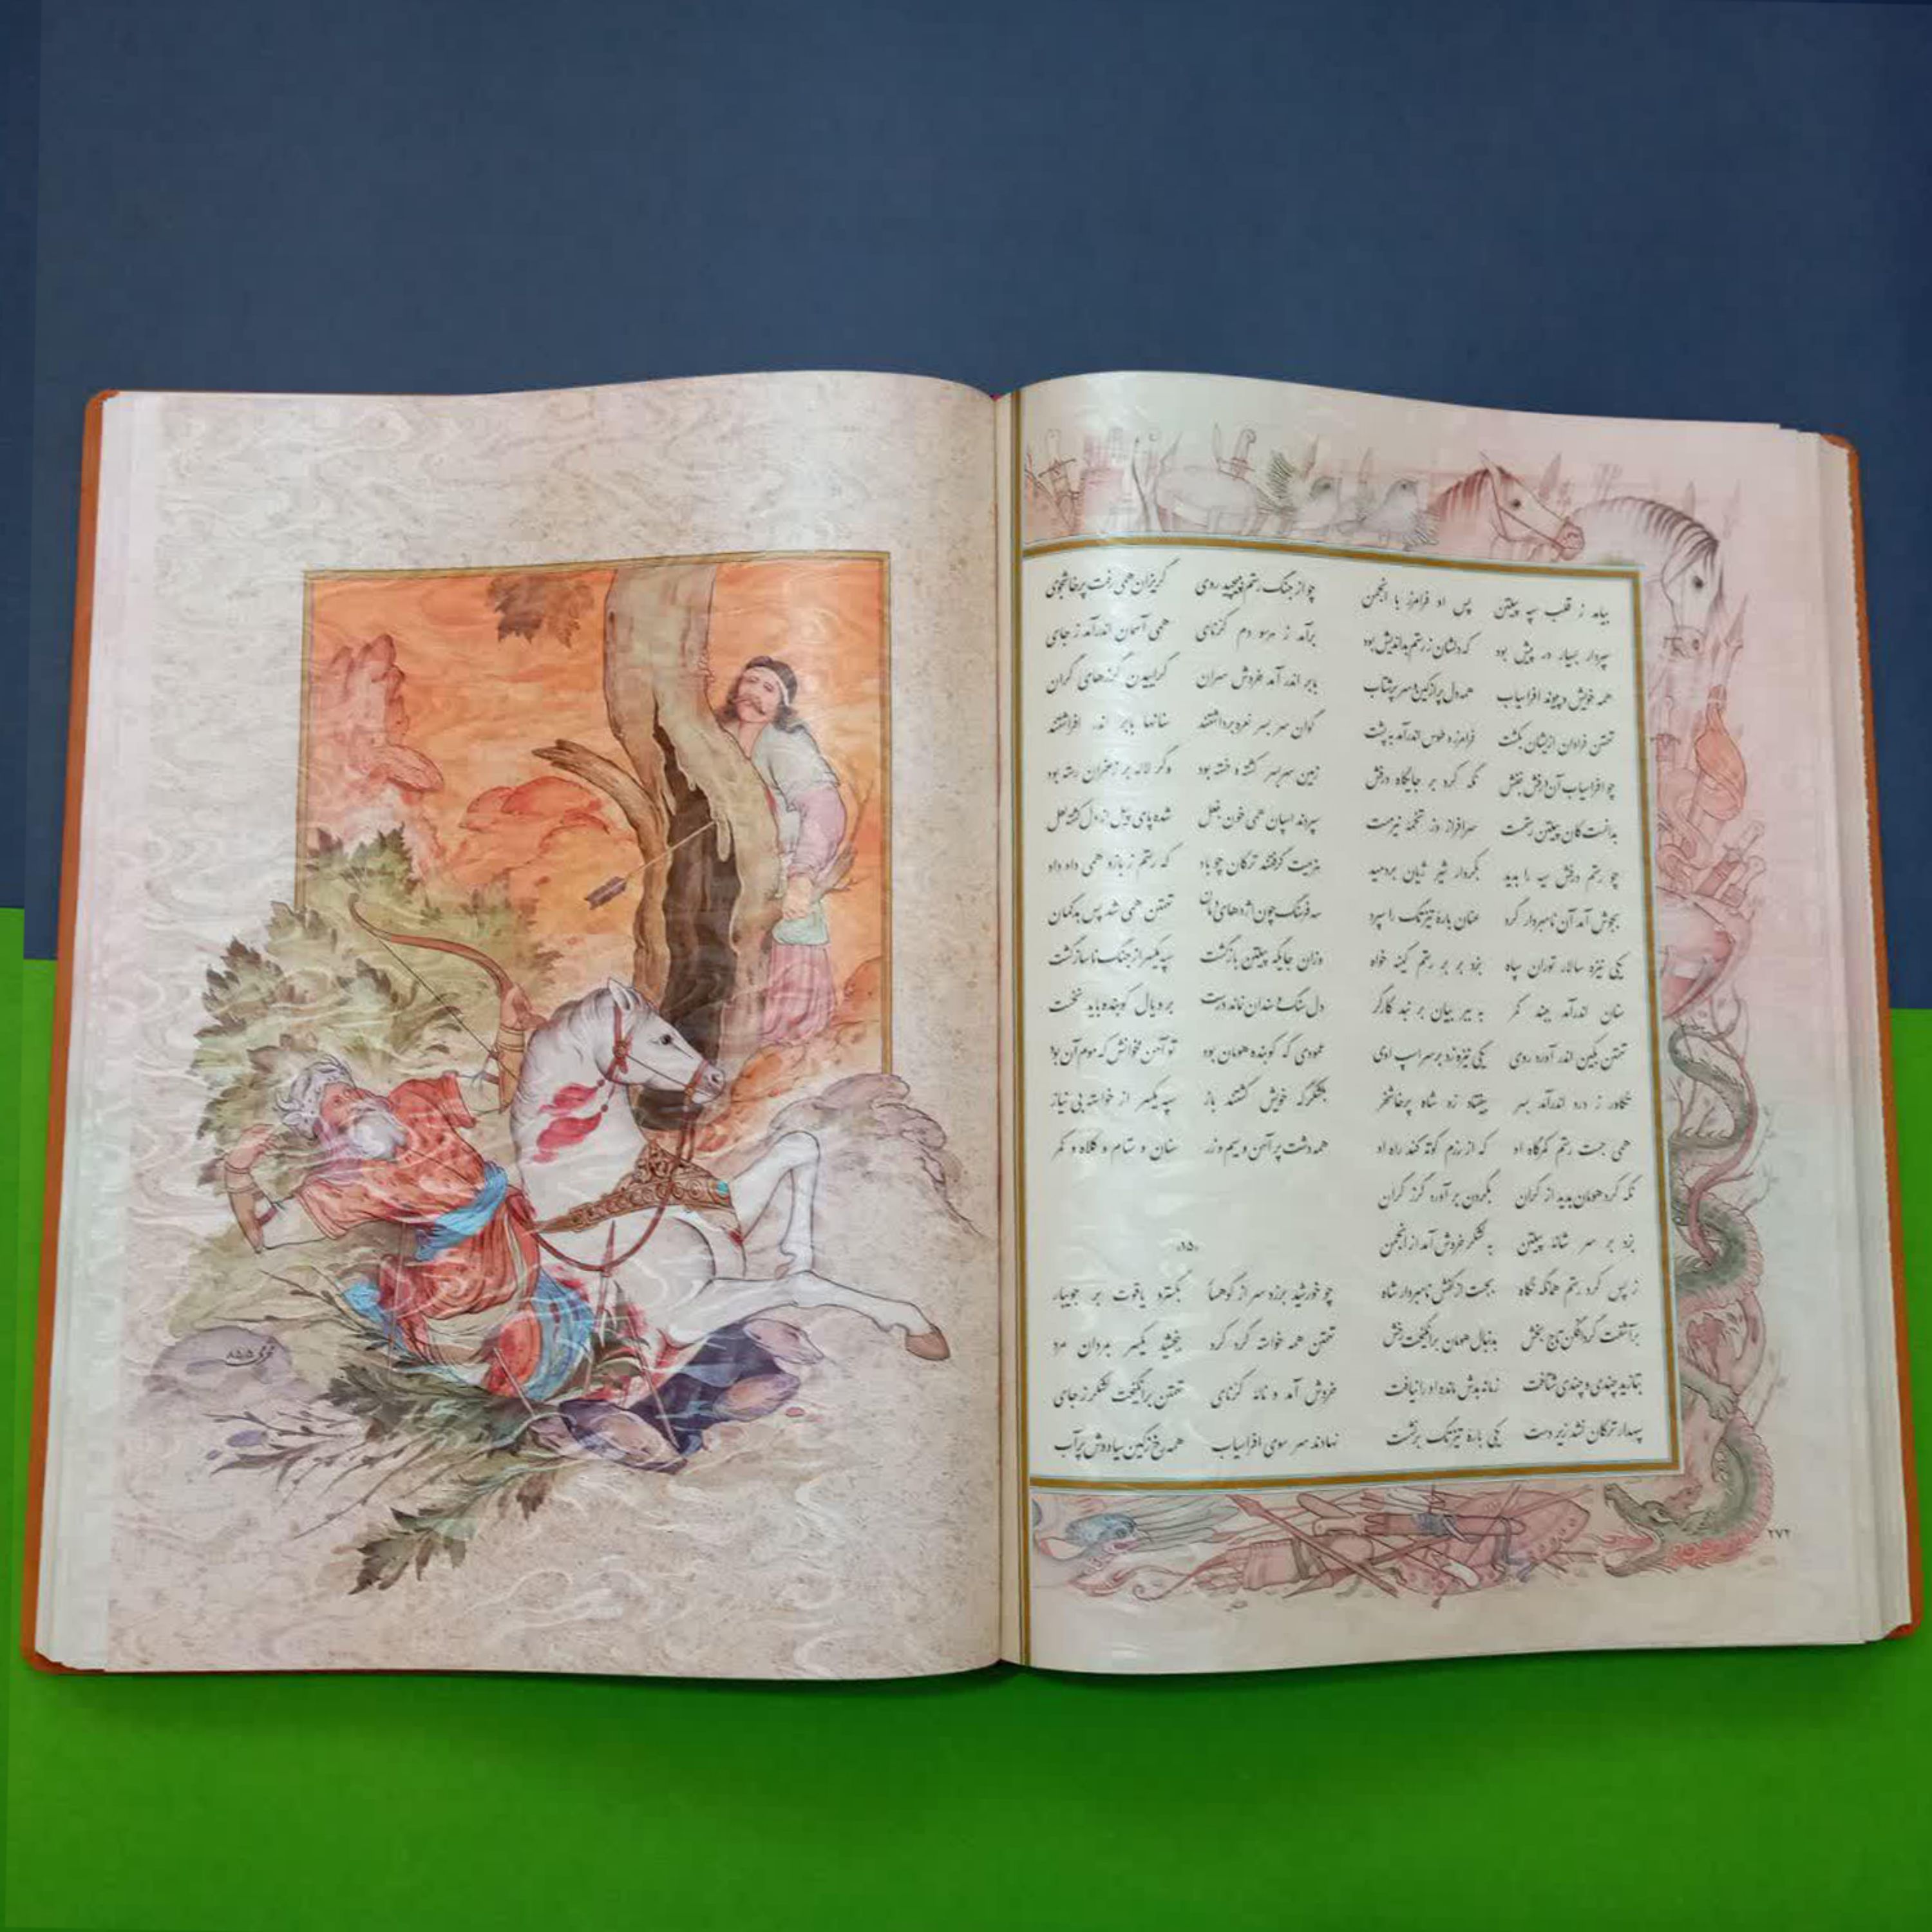 بیامد ز قلب سپه پیلتن پس او فرامرز با انجمن
سپردار بسیار در پیش بود که دلشان ز رستم بداندیش بود
همه خویش و پیوند افراسیاب همه دل پر از کین و سر پرشتاب
تهمتن فراوان ازیشان بکشت فرامرز و طوس اندرآمد به پشت
چو افراسیاب آن درفش بنفش نگه کرد بر جایگاه درفش
بدانست کان پیلتن رستمست سرافراز وز تخمهٔ نیرمست
چو رستم درفش سیه را بدید بکردار شیر ژیان بردمید
بجوش آمد آن نامبردار گرد عنان بارهٔ تیزتگ را سپرد
یکی نیزه سالار توران سپاه بزد بر بر رستم کینه خواه
سنان اندرآمد ببند کمر به ببر بیان بر نبد کارگر
تهمتن بکین اندر آورد روی یکی نیزه زد بر سر اسپ اوی
تگاور ز درد اندرآمد بسر بیفتاد زو شاه پرخاشخر
همی جست رستم کمرگاه او که از رزم کوته کند راه او
نگه کرد هومان بدید از کران بگردن بر آورد گرز گران
بزد بر سر شانهٔ پیلتن به لشکر خروش آمد از انجمن
ز پس کرد رستم همانگه نگاه بجست از کفش نامبردار شاه
برآشفت گردافگن تاج بخش بدنبال هومان برانگیخت رخش
بتازید چندی و چندی شتافت زمانه بدش مانده او را نیافت
سپهدار ترکان نشد زیر دست یکی بارهٔ تیزتگ برنشست
چو از جنگ رستم بپیچید روی گریزان همی رفت پرخاشجوی
برآمد ز هر سو دم کرنای همی آسمان اندرآمد ز جای
بابر اندر آمد خروش سران گراییدن گرزهای گران
گوان سر بسر نعره برداشتند سنانها بابر اندر افراشتند
زمین سربسر کشته و خسته بود وگر لاله بر زعفران رسته بود
سپردند اسپان همی خون بنعل شده پای پیل از دل کشته لعل
هزیمت گرفتند ترکان چو باد که رستم ز بازو همی داد داد
سه فرسنگ چون اژدهای دمان تهمتن همی شد پس بدگمان
وزان جایگه پیلتن بازگشت سپه یکسر از جنگ ناساز گشت
دل سنگ و سندان نماند درست بر و یال کوبنده باید نخست
عمودی که کوبنده هومان بود تو آهن مخوانش که موم آن بود
بلشکرگه خویش گشتند باز سپه یکسر از خواسته بی نیاز
همه دشت پر آهن و سیم و زر سنان و ستام و کلاه و کمر
«۱۵»
چو خورشید برزد سر از کوهسار بگسترد یاقوت بر جویبار
تهمتن همه خواسته گرد کرد ببخشید یکسر بمردان مرد
خروش آمد و نالهٔ کرنای تهمتن برانگیخت لشکر ز جای
نهادند سر سوی افراسیاب همه رخ ز کین سیاوش پرآب
۲۷۲